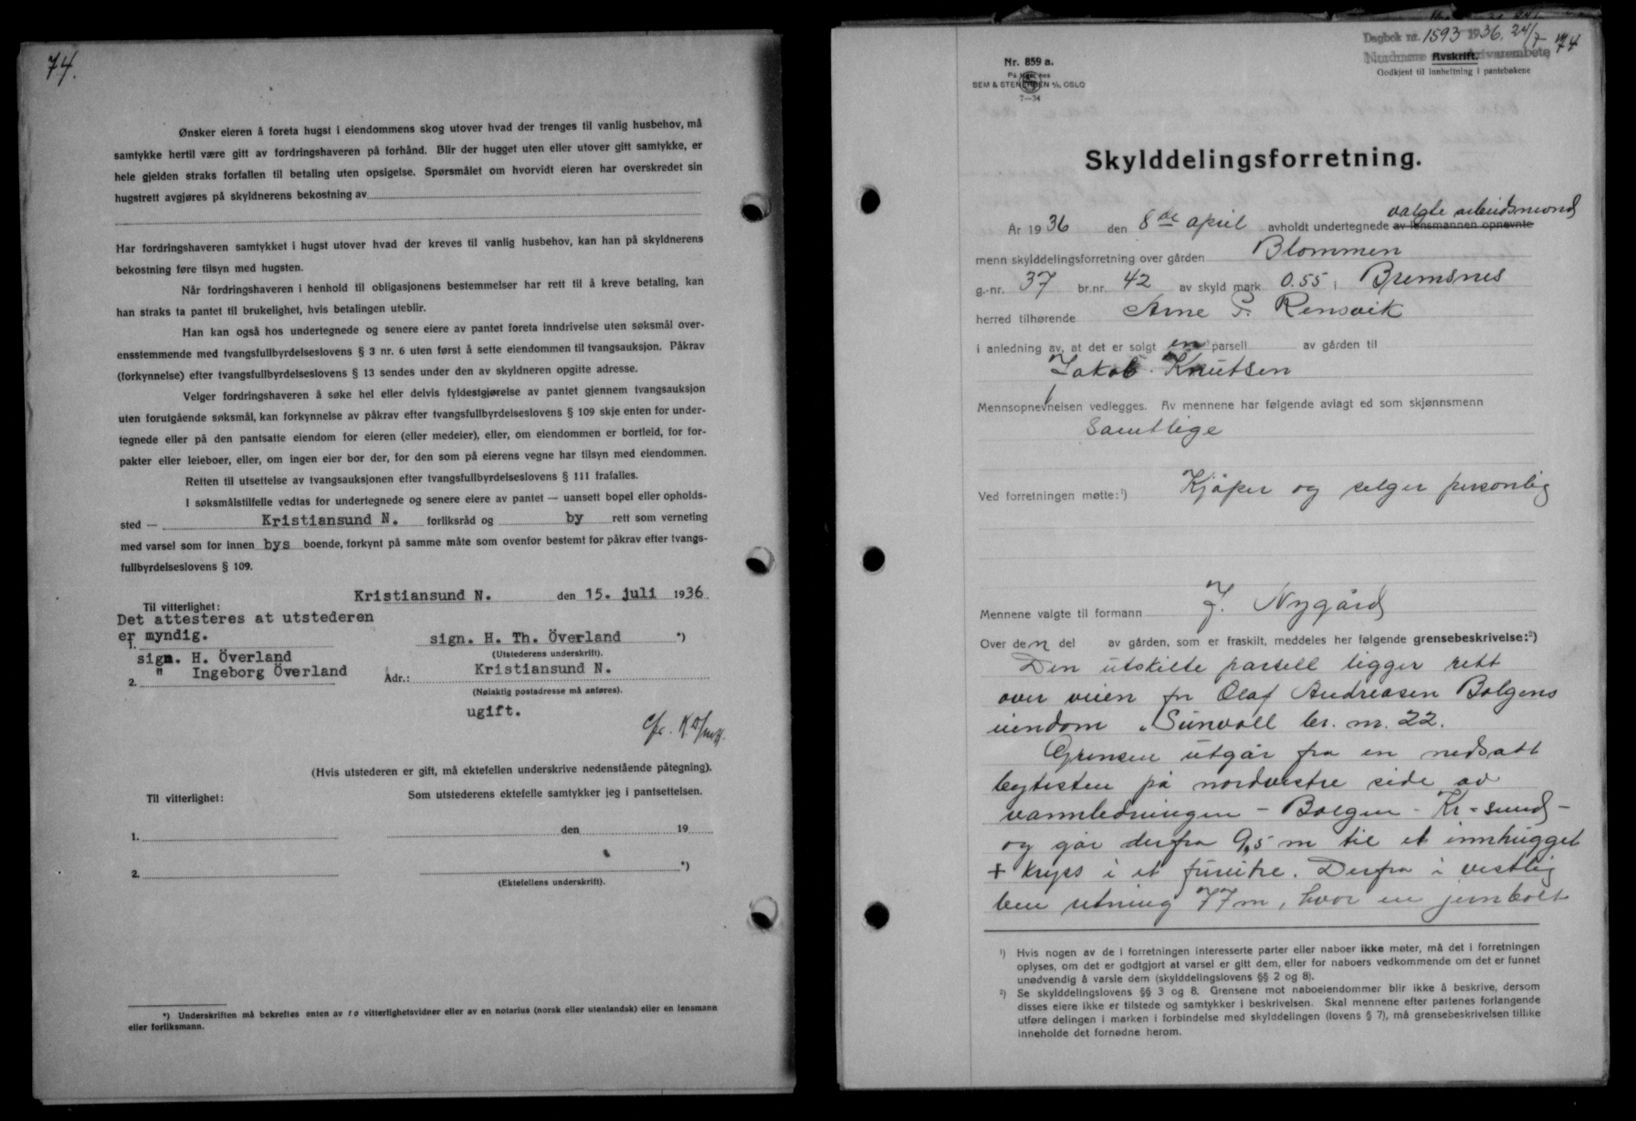 74.
Ønsker eieren å foreta hugst i eiendommens skog utover hvad der trenges til vanlig husbehov, må
samtykke hertil være gitt av fordringshaveren på forhånd. Blir der hugget uten eller utover gitt samtykke, er
hele gjelden straks forfallen til betaling uten opsigelse. Spørsmålet om hvorvidt eieren har overskredet sin
hugstrett avgjøres på skyldnerens bekostning av
Har fordringshaveren samtykket i hugst utover hvad der kreves til vanlig husbehov, kan han på skyldnerens
bekostning føre tilsyn med hugsten.
Når fordringshaveren i henhold til obligasjonens bestemmelser har rett til å kreve betaling, kan
han straks ta pantet til brukelighet, hvis betalingen uteblir.
Han kan også hos undertegnede og senere eiere av pantet foreta inndrivelse uten søksmål over-
ensstemmende med tvangsfullbyrdelseslovens § 3 nr. 6 uten først å sette eiendommen til tvangsauksjon. Påkrav
(forkynnelse) efter tvangsfullbyrdelseslovens § 13 sendes under den av skyldneren opgitte adresse.
Velger fordringshaveren å søke hel eller delvis fyldestgjørelse av pantet gjennem tvangsauksjon
uten forutgående søksmål, kan forkynnelse av påkrav efter tvangsfullbyrdelseslovens § 109 skje enten for under-
tegnede eller på den pantsatte eiendom for eieren (eller medeier), eller, om eiendommen er bortleid, for for-
pakter eller leieboer, eller, om ingen eier bor der, for den som på eierens vegne har tilsyn med eiendommen.
Retten til utsettelse av tvangsauksjonen efter tvangsfullbyrdelseslovens § 111 frafalles.
I søksmålstilfelle vedtas for undertegnede og senere eiere av pantet — uansett bopel eller opholds-
sted — Kristiansund N. forliksråd og by rett som verneting
med varsel som for innen bys boende, forkynt på samme måte som ovenfor bestemt for påkrav efter tvangs-
fullbyrdelseslovens § 109.
Kristiansund N. den 15. juli 1936.
Til vitterlighet:
Det attesteres at utstederen
er myndig.
1.
sign. H. Th. Överland *)
sign. H. Överland
(Utstederens underskrift).
" Ingeborg Överland
2.
Adr.: Kristiansund N.
(Nøiaktig postadresse må anføres).
ugift.
(Hvis utstederen er gift, må ektefellen underskrive nedenstående påtegning).
Til vitterlighet:
Som utstederens ektefelle samtykker jeg i pantsettelsen.
1. den 19
2. *)
(Ektefellens underskrift).
*) Underskriften må bekreftes enten av to vitterlighetsvidner eller av en notarius (norsk eller utenlandsk) eller en lensmann
eller forliksmann.
Dagbok nr. 1593 1936, 24/7 74
Avskrift.
Godkjent til innheftning i pantebøkene
Nr. 859 a.
SEM & STENERSEN A/S, OSLO
7—34
Skylddelingsforretning.
valgte arbeidsmend
År 1936 den 8de april avholdt undertegnede av lensmannen opnevnte
menn skylddelingsforretning over gården Blommen
g.-nr. 37 br.nr. 42 av skyld mark 0.55 i Bremsnes
herred tilhørende Arne P. Rensvik
i anledning av, at det er solgt en parsell av gården til
Jakob Knutsen
Mennsopnevnelsen vedlegges. Av mennene har følgende avlagt ed som skjønnsmenn
Samtlige
Ved forretningen møtte:¹) Kjøper og selger personlig
Mennene valgte til formann J. Nygård
Over den del av gården, som er fraskilt, meddeles her følgende grensebeskrivelse:²)
Den utskilte parsell ligger rett
over veien for Olaf Andreasen Bolgens
eiendom „Sunvoll br. nr. 22.
Grensen utgår fra en nedsatt
bytesten på nordvestre side av
vannledningen – Bolgen – Kr-sund –
og går derfra 9,5 m til et innhugget
+ kryss i et furutre. Derfra i vestlig
ben retning 77 m, hvor en jernbolt
¹) Hvis nogen av de i forretningen interesserte parter eller naboer ikke møter, må det i forretningen
oplyses, om det er godtgjort at varsel er gitt dem, eller for naboers vedkommende om det er funnet
unødvendig å varsle dem (skylddelingslovens §§ 2 og 8).
²) Se skylddelingslovens §§ 3 og 8. Grensene mot naboeiendommer blir ikke å beskrive, dersom
disses eiere ikke er tilstede og samtykker i beskrivelsen. Skal mennene efter partenes forlangende
utføre delingen i marken i forbindelse med skylddelingen (lovens § 7), må grensebeskrivelsen tillike
inneholde det fornødne herom.